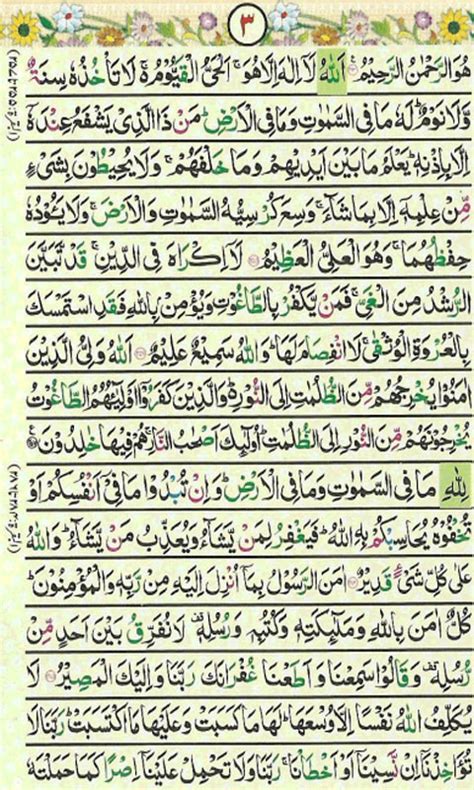 ٣
هُوَ الرَّحْمٰنُ الرَّحِيْمُ اَللّٰهُ لَاۤ اِلٰهَ اِلَّا هُوَ ۚ اَلْحَيُّ الْقَيُّوْمُ ۚ لَا تَاْخُذُهٗ سِنَةٌ
وَّلَا نَوْمٌ ؕ لَهٗ مَا فِي السَّمٰوٰتِ وَمَا فِي الْاَرْضِ ؕ مَنْ ذَا الَّذِيْ يَشْفَعُ عِنْدَهٗۤ
اِلَّا بِاِذْنِهٖ ؕ يَعْلَمُ مَا بَيْنَ اَيْدِيْهِمْ وَمَا خَلْفَهُمْ ۚ وَلَا يُحِيْطُوْنَ بِشَيْءٍ
مِّنْ عِلْمِهٖۤ اِلَّا بِمَا شَآءَ ۚ وَسِعَ كُرْسِيُّهُ السَّمٰوٰتِ وَالْاَرْضَ ۚ وَلَا يَـُٔوْدُهٗ
حِفْظُهُمَا ۚ وَهُوَ الْعَلِيُّ الْعَظِيْمُ لَاۤ اِكْرَاهَ فِي الدِّيْنِ ۚ قَدْ تَّبَيَّنَ
الرُّشْدُ مِنَ الْغَيِّ ۚ فَمَنْ يَّكْفُرْ بِالطَّاغُوْتِ وَيُؤْمِنْۢ بِاللّٰهِ فَقَدِ اسْتَمْسَكَ
بِالْعُرْوَةِ الْوُثْقٰى ۚ لَا انْفِصَامَ لَهَا ؕ وَاللّٰهُ سَمِيْعٌ عَلِيْمٌ اَللّٰهُ وَلِيُّ الَّذِيْنَ
اٰمَنُوْا يُخْرِجُهُمْ مِّنَ الظُّلُمٰتِ اِلَى النُّوْرِ ؕ وَالَّذِيْنَ كَفَرُوْۤا اَوْلِيٰٓـُٔهُمُ الطَّاغُوْتُ
يُخْرِجُوْنَهُمْ مِّنَ النُّوْرِ اِلَى الظُّلُمٰتِ ؕ اُولٰٓئِكَ اَصْحٰبُ النَّارِ ۚ هُمْ فِيْهَا خٰلِدُوْنَ
لِلّٰهِ مَا فِي السَّمٰوٰتِ وَمَا فِي الْاَرْضِ ؕ وَاِنْ تُبْدُوْا مَا فِيْۤ اَنْفُسِكُمْ اَوْ
تُخْفُوْهُ يُحَاسِبْكُمْ بِهِ اللّٰهُ ؕ فَيَغْفِرُ لِمَنْ يَّشَآءُ وَيُعَذِّبُ مَنْ يَّشَآءُ ؕ وَاللّٰهُ
عَلٰى كُلِّ شَيْءٍ قَدِيْرٌ اٰمَنَ الرَّسُوْلُ بِمَاۤ اُنْزِلَ اِلَيْهِ مِنْ رَّبِّهٖ وَالْمُؤْمِنُوْنَ ؕ
كُلٌّ اٰمَنَ بِاللّٰهِ وَمَلٰٓئِكَتِهٖ وَكُتُبِهٖ وَرُسُلِهٖ لَا نُفَرِّقُ بَيْنَ اَحَدٍ مِّنْ
رُّسُلِهٖ وَقَالُوْا سَمِعْنَا وَاَطَعْنَا غُفْرَانَكَ رَبَّنَا وَاِلَيْكَ الْمَصِيْرُ لَا
يُكَلِّفُ اللّٰهُ نَفْسًا اِلَّا وُسْعَهَا ؕ لَهَا مَا كَسَبَتْ وَعَلَيْهَا مَا اكْتَسَبَتْ ؕ رَبَّنَا لَا
تُؤَاخِذْنَاۤ اِنْ نَّسِيْنَاۤ اَوْ اَخْطَاْنَا ۚ رَبَّنَا وَلَا تَحْمِلْ عَلَيْنَاۤ اِصْرًا كَمَا حَمَلْتَهٗ